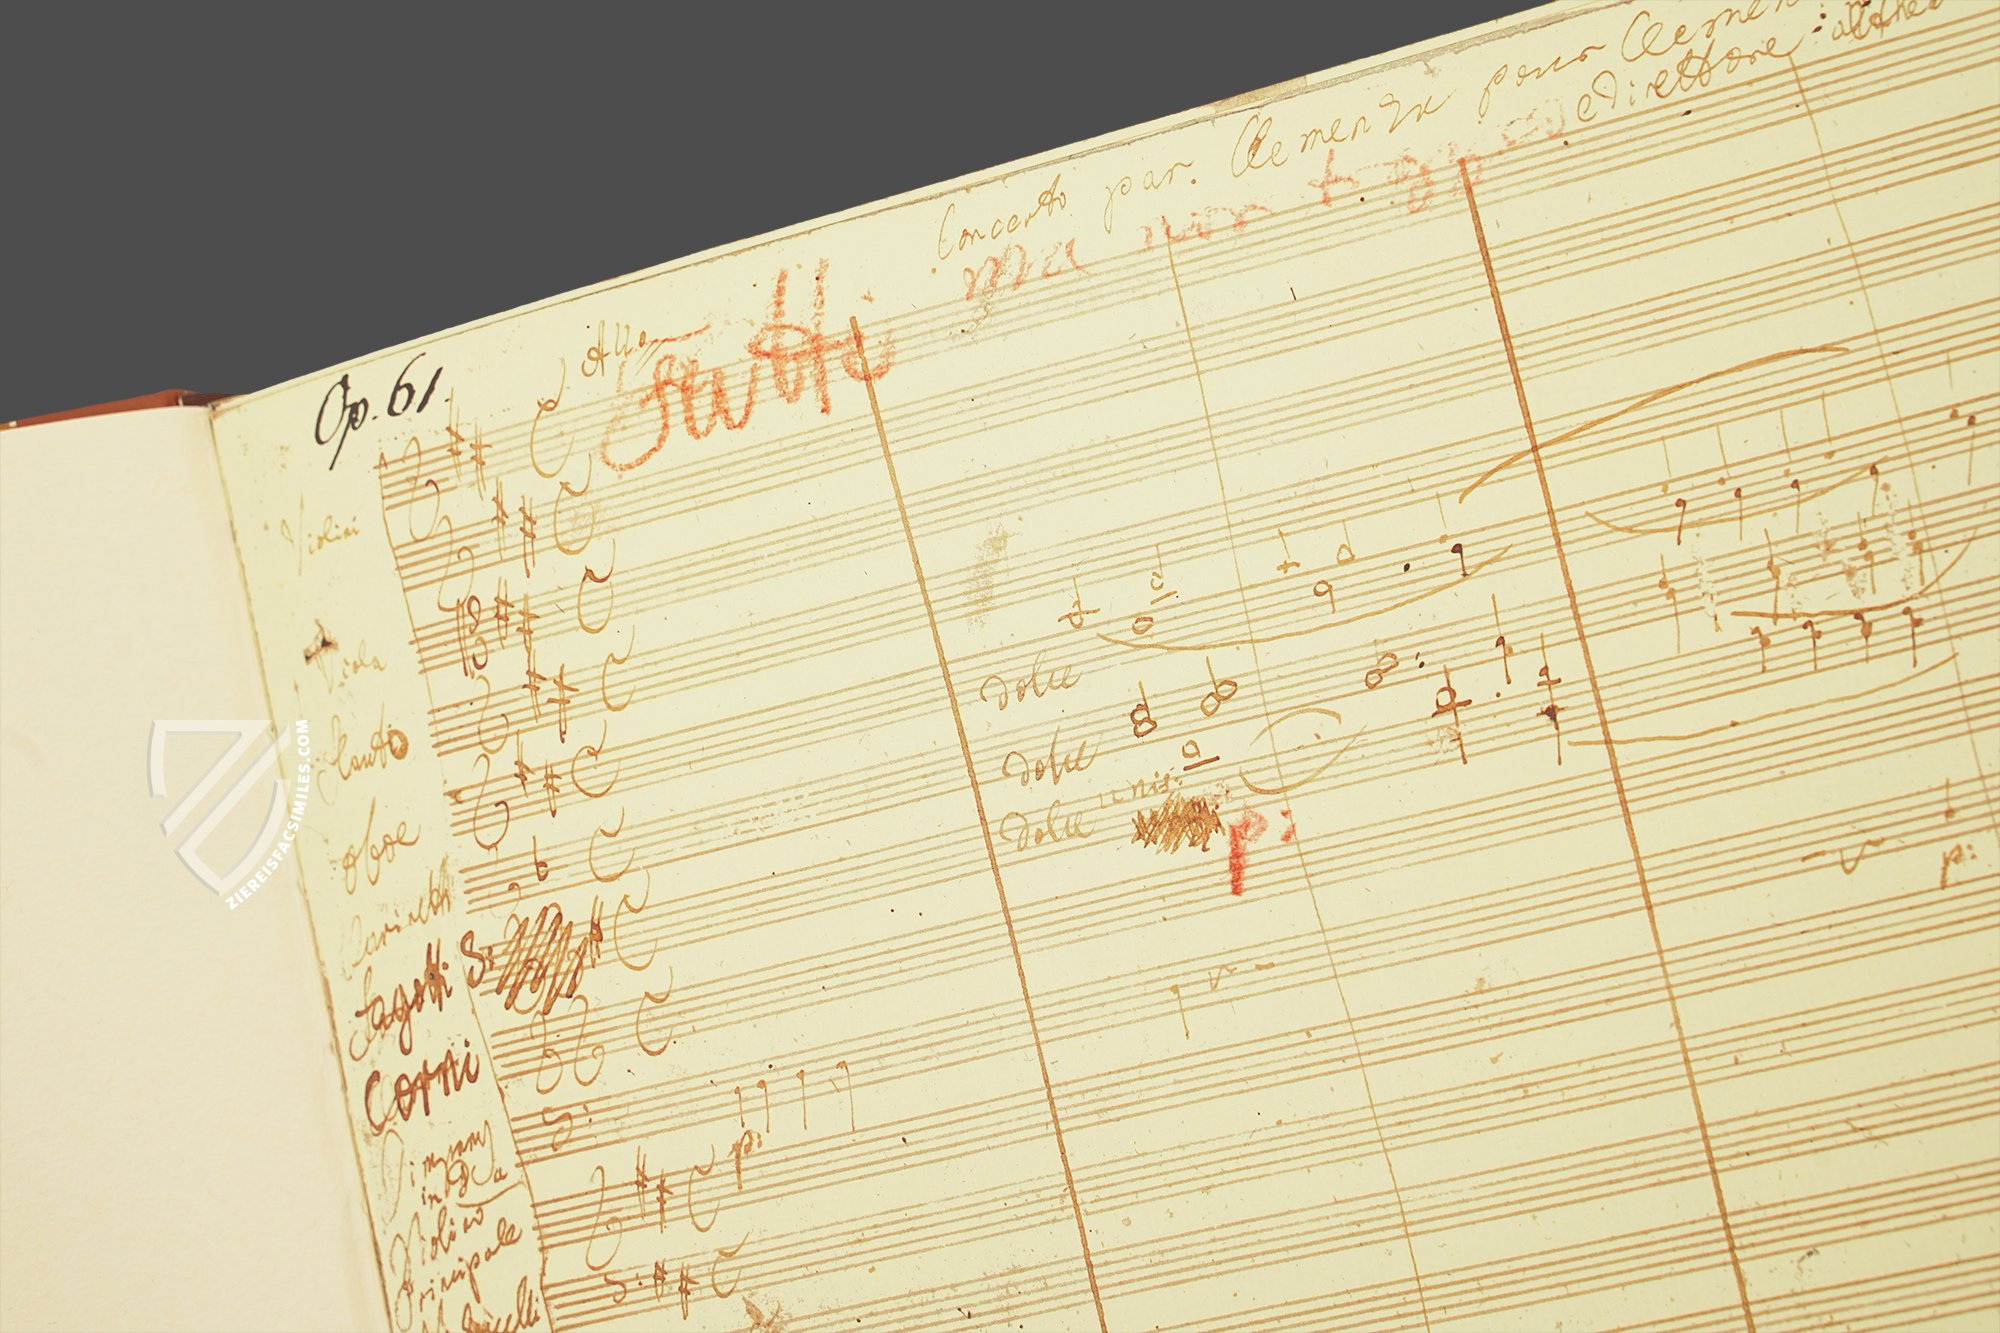 Concerto par Clemenza pour Clemen
e direttore
Op. 61.
Allo
ma non troppo
Tutti
Violini
Viola
flauto
oboe
Clarinetti
fagotti
Corni
Timpany
in D A
Violino
principale
dolce
dolce
dolce
p:
p:
p:
ZIEREISFACSIMILES.COM